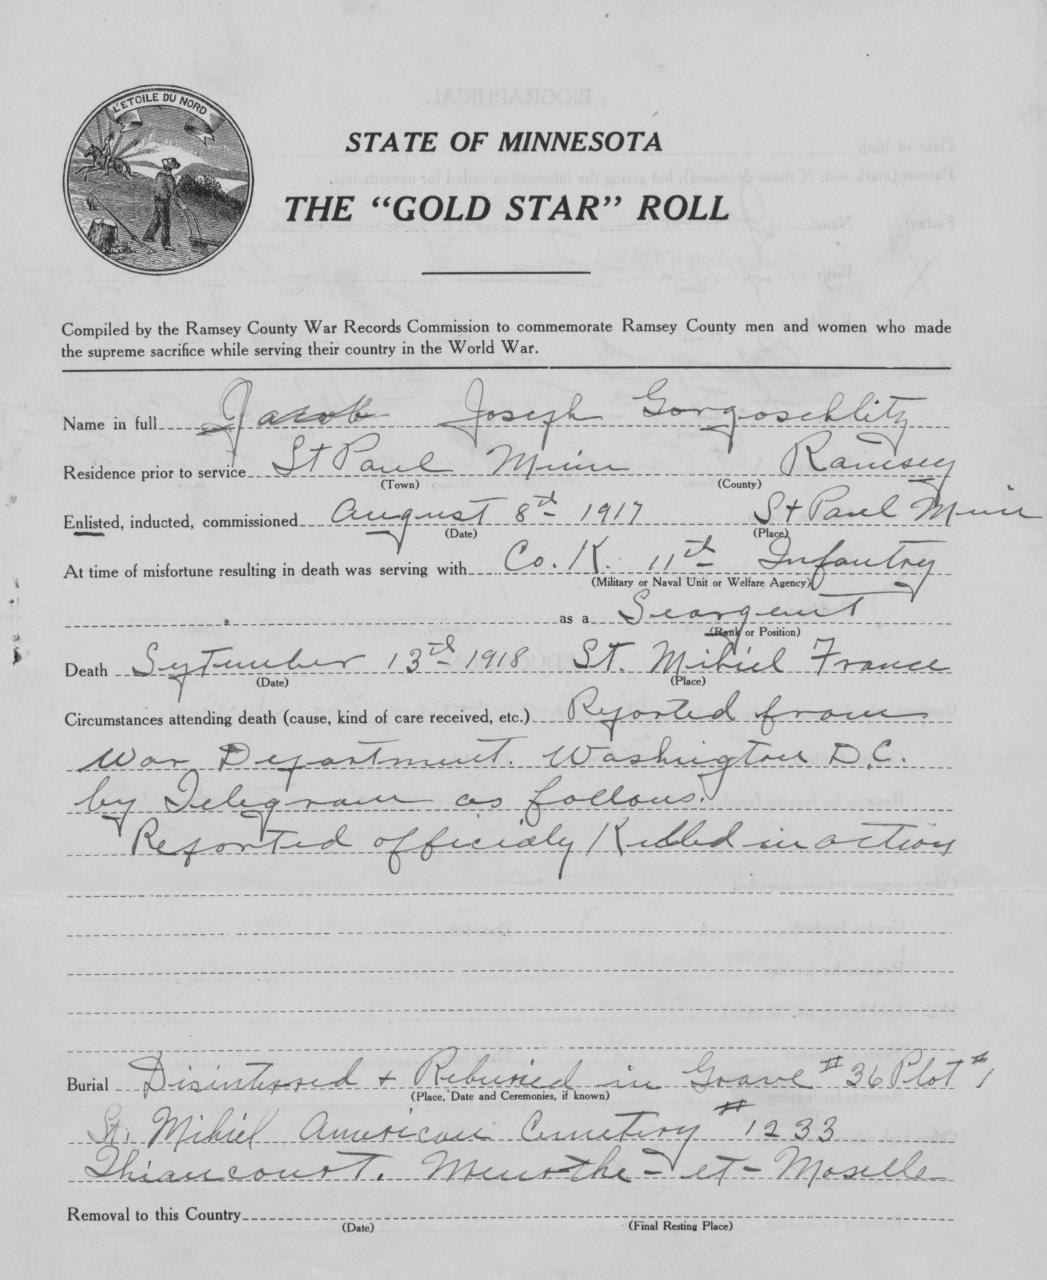 L'ETOILE DU NORD
STATE OF MINNESOTA
THE “GOLD STAR” ROLL
Compiled by the Ramsey County War Records Commission to commemorate Ramsey County men and women who made
the supreme sacrifice while serving their country in the World War.
Name in full Jacob Joseph Gorgoschlitz
Residence prior to service St Paul Minn Ramsey
(Town) (County)
Enlisted, inducted, commissioned August 8th 1917 St Paul Minn
(Date) (Place)
At time of misfortune resulting in death was serving with Co. K. 11th Infantry
(Military or Naval Unit or Welfare Agency)
as a Seargent
(Rank or Position)
Death September 13th 1918 St. Mihiel France
(Date) (Place)
Circumstances attending death (cause, kind of care received, etc.) Reported from
War Department. Washington D.C.
by Telegram as follows.
Reported officialy Killed in action
Burial Disinterred + Reburied in Grave #36 Plot #1
(Place, Date and Ceremonies, if known)
St. Mihiel American Cemetery #1233
Thiaucourt. Meurthe-et-Moselle
Removal to this Country
(Date) (Final Resting Place)